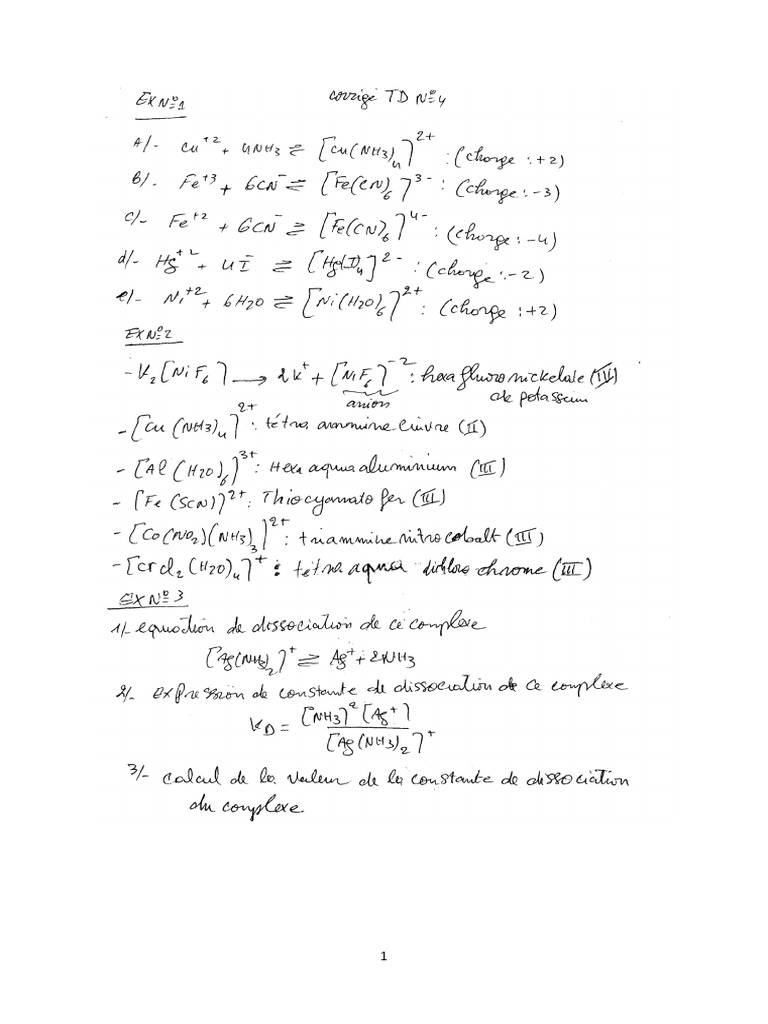 Ex N°1 corrigé TD N°4
A/- Cu⁺² + 4NH3 ⇌ [Cu(NH3)₄]²⁺ : (charge : +2)
B/- Fe⁺³ + 6CN⁻ ⇌ [Fe(CN)₆]³⁻ : (charge : -3)
c/- Fe⁺² + 6CN⁻ ⇌ [Fe(CN)₆]⁴⁻ : (charge : -4)
d/- Hg⁺² + 4I⁻ ⇌ [Hg(I)₄]²⁻ : (charge : -2)
e/- Ni⁺² + 6H2O ⇌ [Ni(H2O)₆]²⁺ : (charge : +2)
Ex N°2
- K₂[NiF₆] → 2K⁺ + [NiF₆]⁻² : hexafluoronickelate (IV)
anion de potassium
- [Cu(NH3)₄]²⁺ : tétraammine cuivre (II)
- [Al(H2O)₆]³⁺ : Hexaaquaaluminium (III)
- [Fe(SCN)]²⁺ : Thiocyanato fer (III)
- [Co(NO₂)(NH3)₃]²⁺ : triammine nitro cobalt (III)
- [CrCl₂(H2O)₄]⁺ : tétraaqua dichloro chrome (III)
Ex N°3
1/- equation de dissociation de ce complexe
[Ag(NH3)₂]⁺ ⇌ Ag⁺ + 2NH3
2/- expression de constante de dissociation de ce complexe
K_D = [NH3]²[Ag⁺] / [Ag(NH3)₂]⁺
3/- calcul de la valeur de la constante de dissociation
du complexe
1